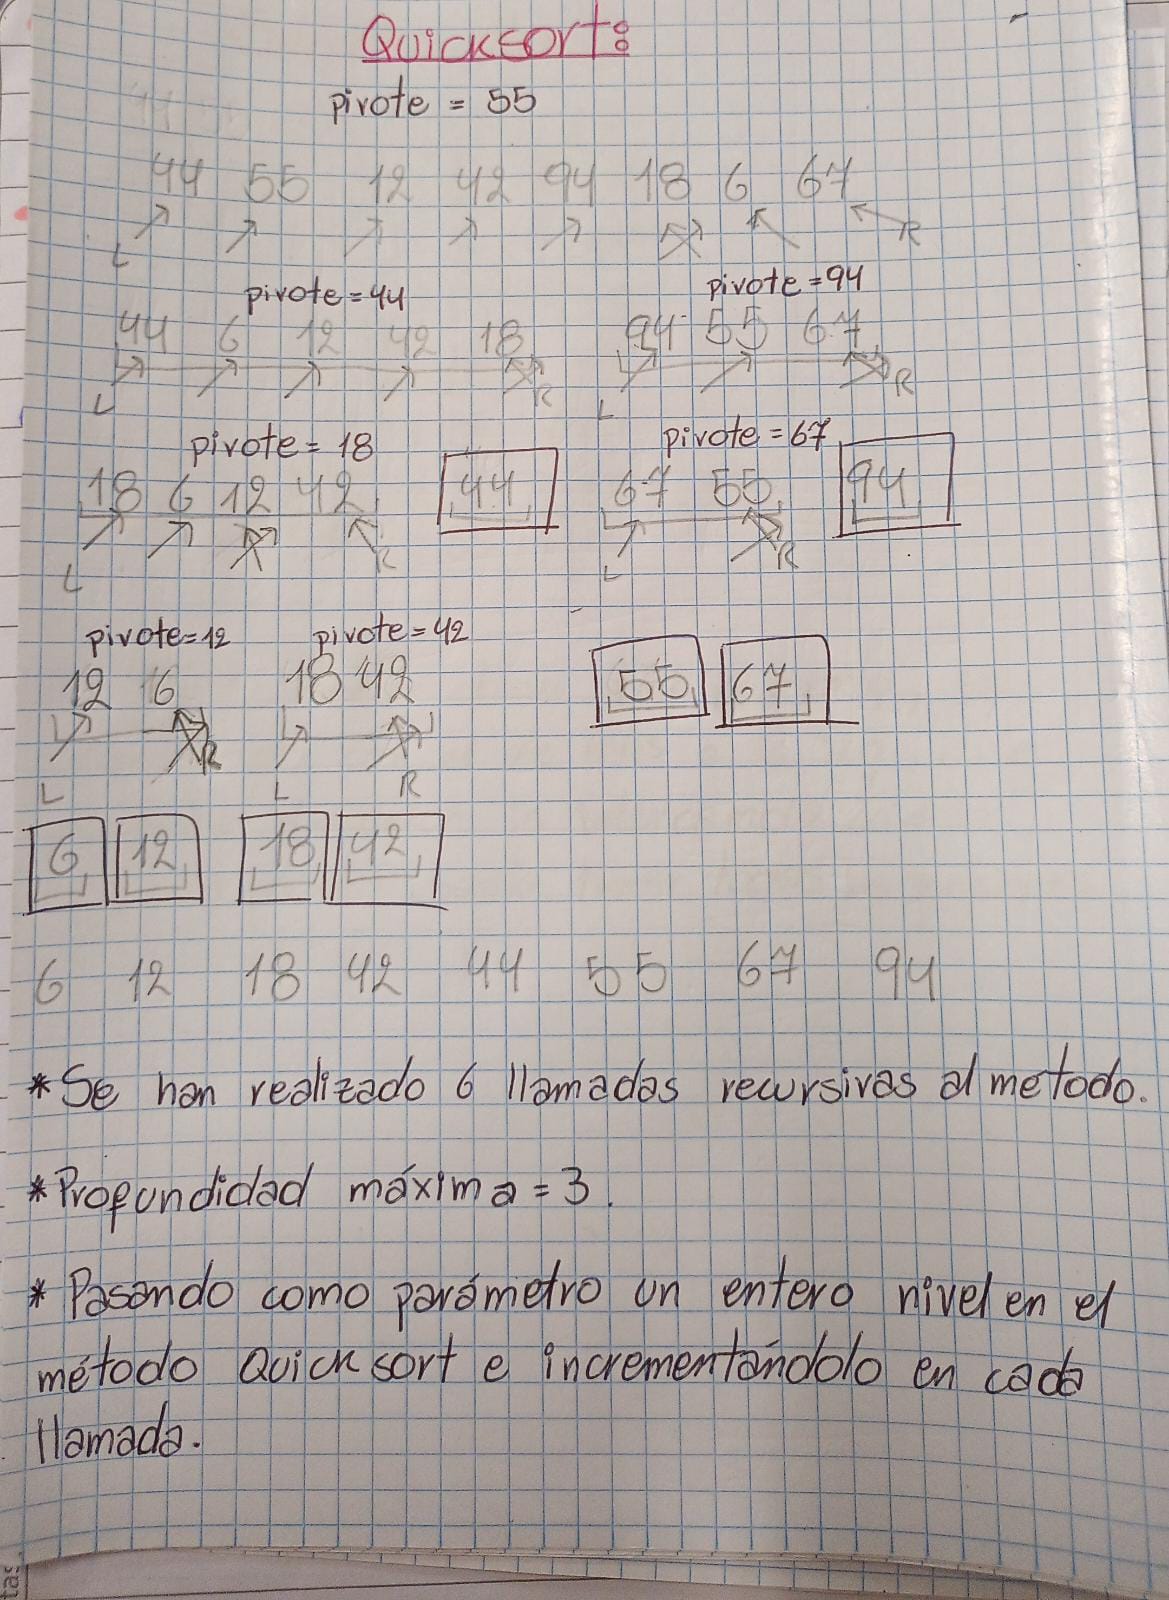 Quicksort:
pivote = 55
44 55 12 42 94 18 6 67
L R
pivote=44 pivote=94
44 6 12 42 18 94 55 67
L R L R
pivote=18 pivote=67
18 6 12 42 44 67 55 94
L R L R
pivote=12 pivote=42
12 6 18 42 55 67
L R L R
6 12 18 42
6 12 18 42 44 55 67 94
* Se han realizado 6 llamadas recursivas al metodo.
* Profundidad máxima = 3.
* Pasando como parámetro un entero nivel en el
método Quick sort e incrementándolo en cada
llamada.
tas